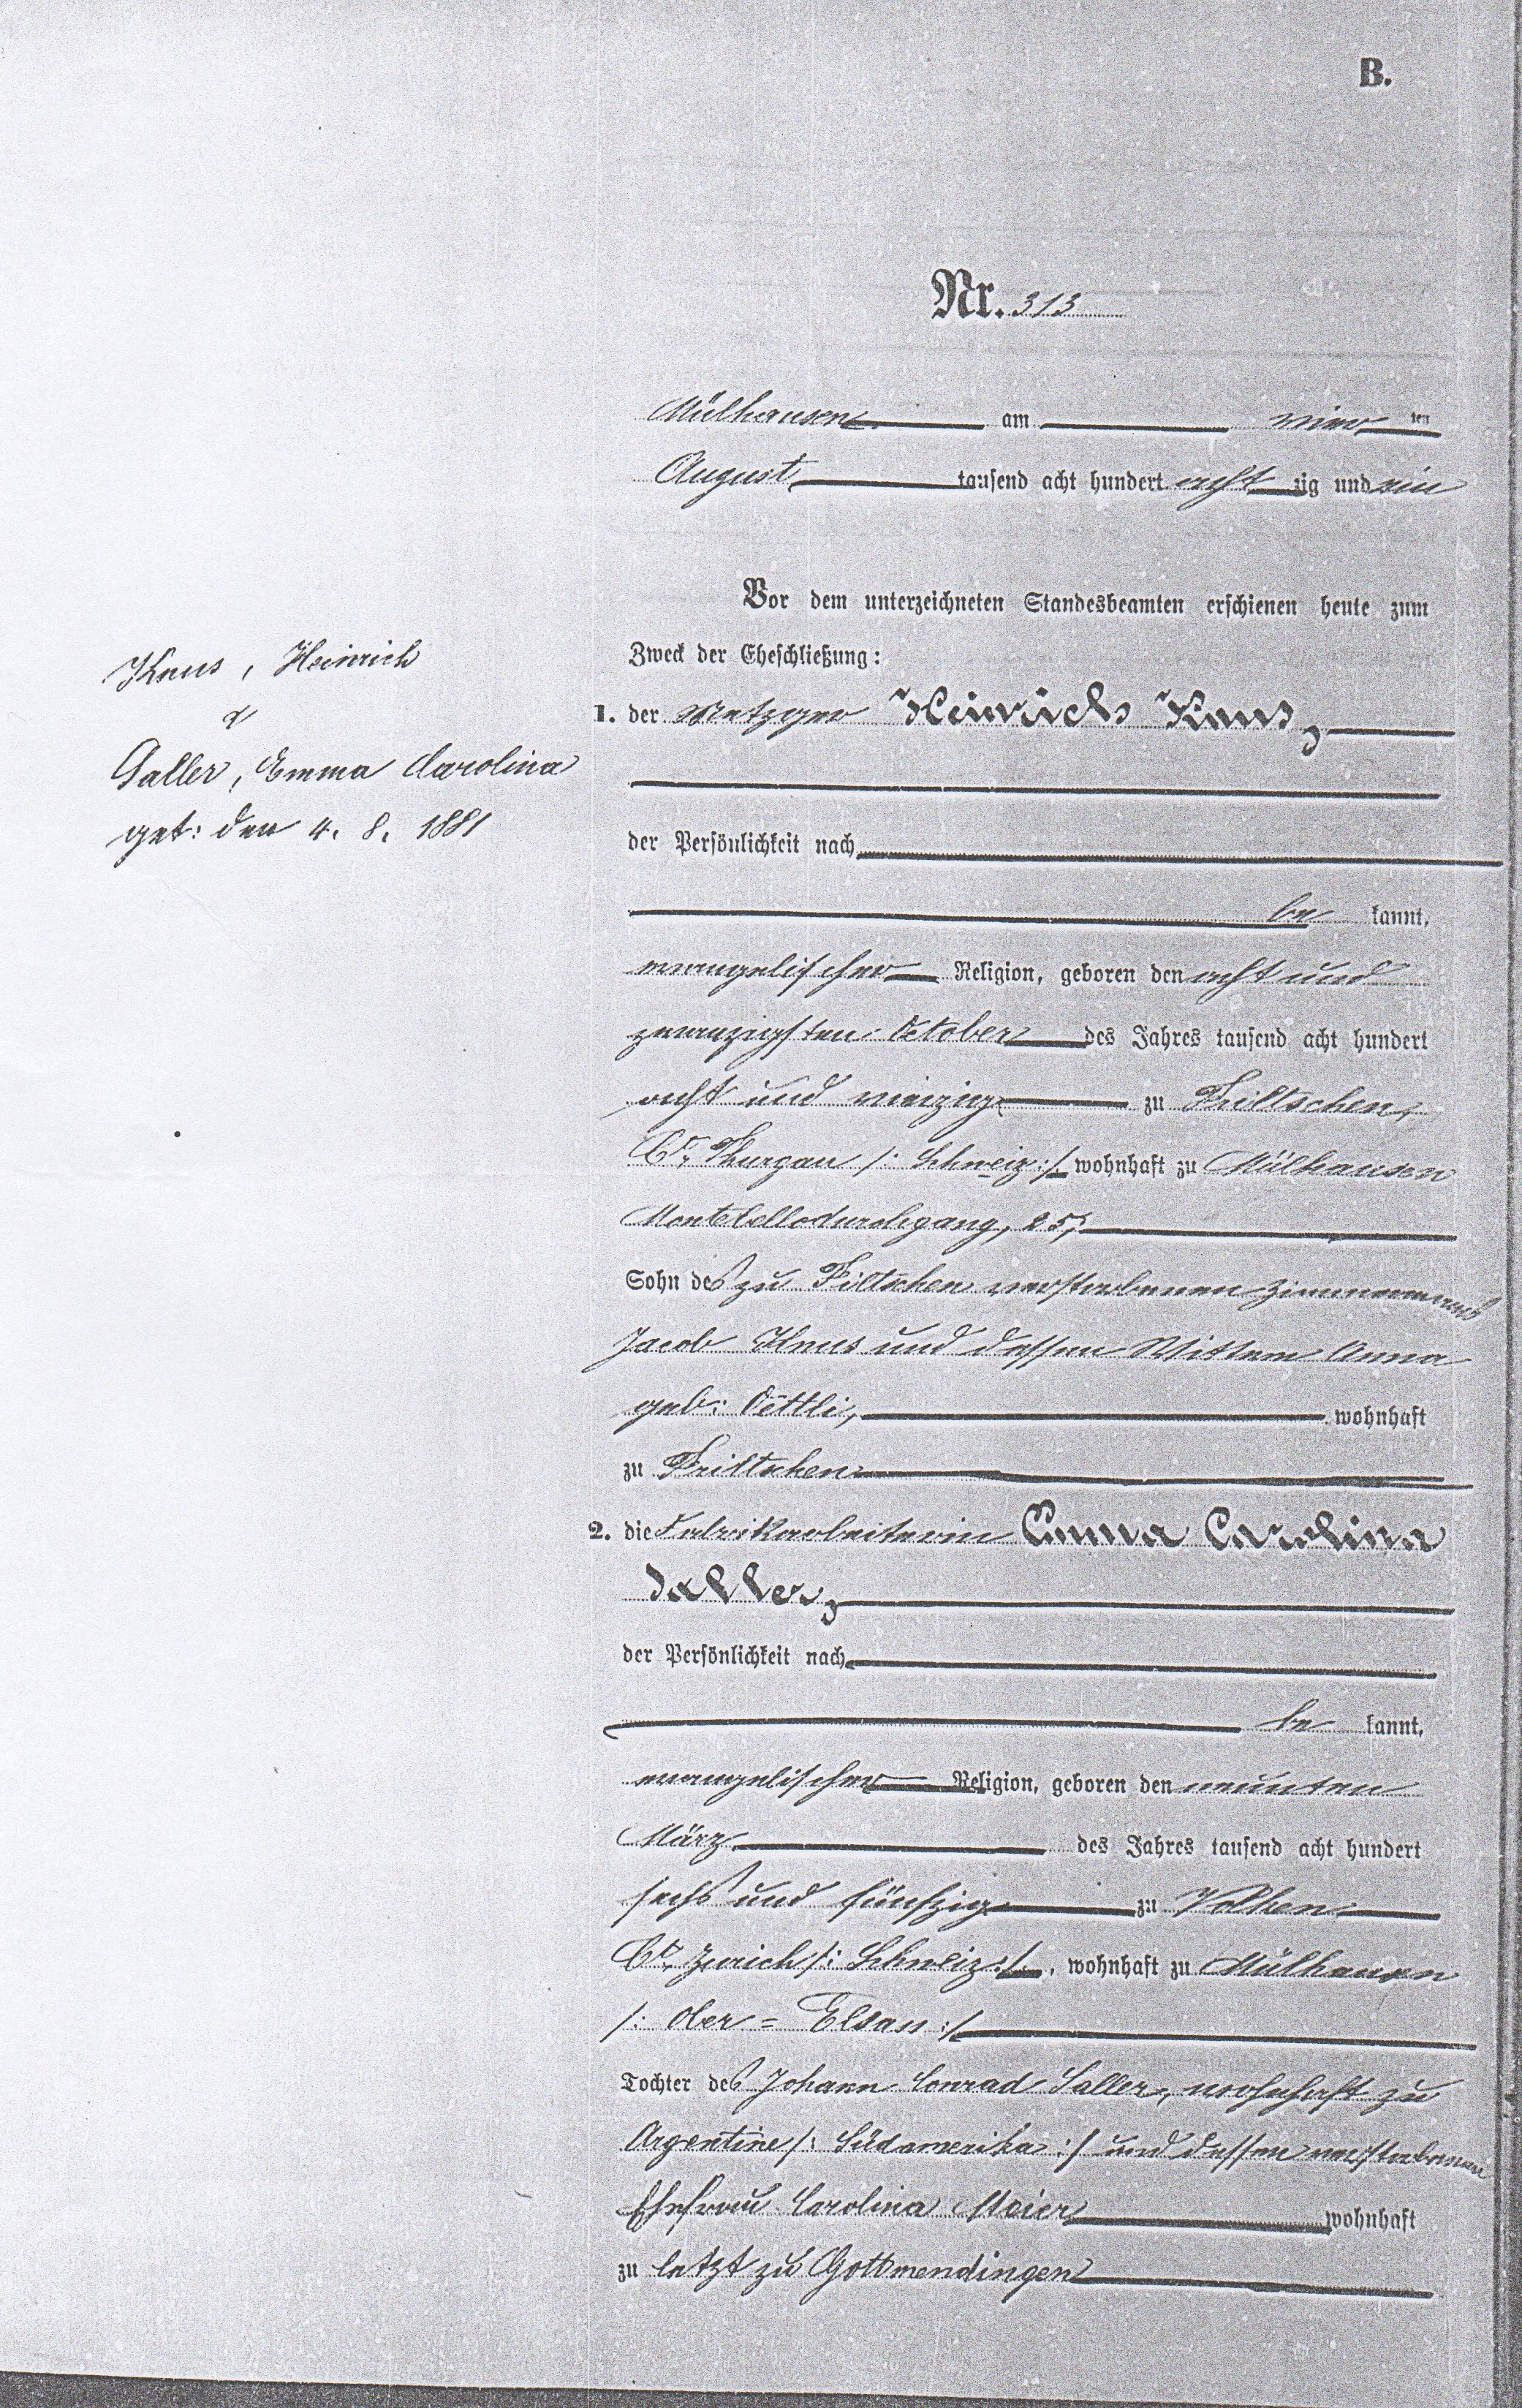 B.
Nr. 313
Mülhausen am vier ten
August tausend acht hundert acht zig und ein
Vor dem unterzeichneten Standesbeamten erschienen heute zum
Zweck der Eheschließung:
Knus, Heinrich
&
Saller, Emma Carolina
get: den 4. 8. 1881
1. der Metzger Heinrich Knus,
der Persönlichkeit nach
be kannt,
evangelischer Religion, geboren den acht und
zwanzigsten October des Jahres tausend acht hundert
acht und vierzig zu Friltschen,
Ct. Thurgau /: Schweiz :/ wohnhaft zu Mülhausen
Montebellodurchgang, 25,
Sohn des zu Filtschen verstorbenen Zimmermanns
Jacob Knus und dessen Wittwe Anna
geb: Oettli, wohnhaft
zu Friltschen
2. die Fabrikarbeiterin Emma Carolina
Saller,
der Persönlichkeit nach
be kannt,
evangelischer Religion, geboren den neunten
März des Jahres tausend acht hundert
sechs und fünfzig zu Volken
Ct. Zurich /: Schweiz :/, wohnhaft zu Mülhausen
/: Ober = Elsass :/
Tochter des Johann Conrad Saller, wohnhaft zu
Argentine /: Südamerika :/ und dessen verstorbenen
Ehefrau Carolina Meier wohnhaft
zu letzt zu Gottmendingen